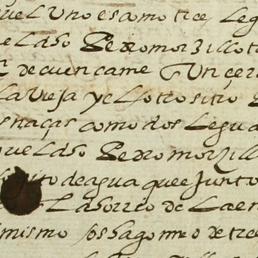 uel Uno esamo trce leg
e laso Pedro morzillo t
de cuencame Un cer
la vieja y el otro sitio
snaças como dos legua
que laso Pedro morzill
sito de agua quee Junto
La horrco de Laen
mismo los hago me o de tre